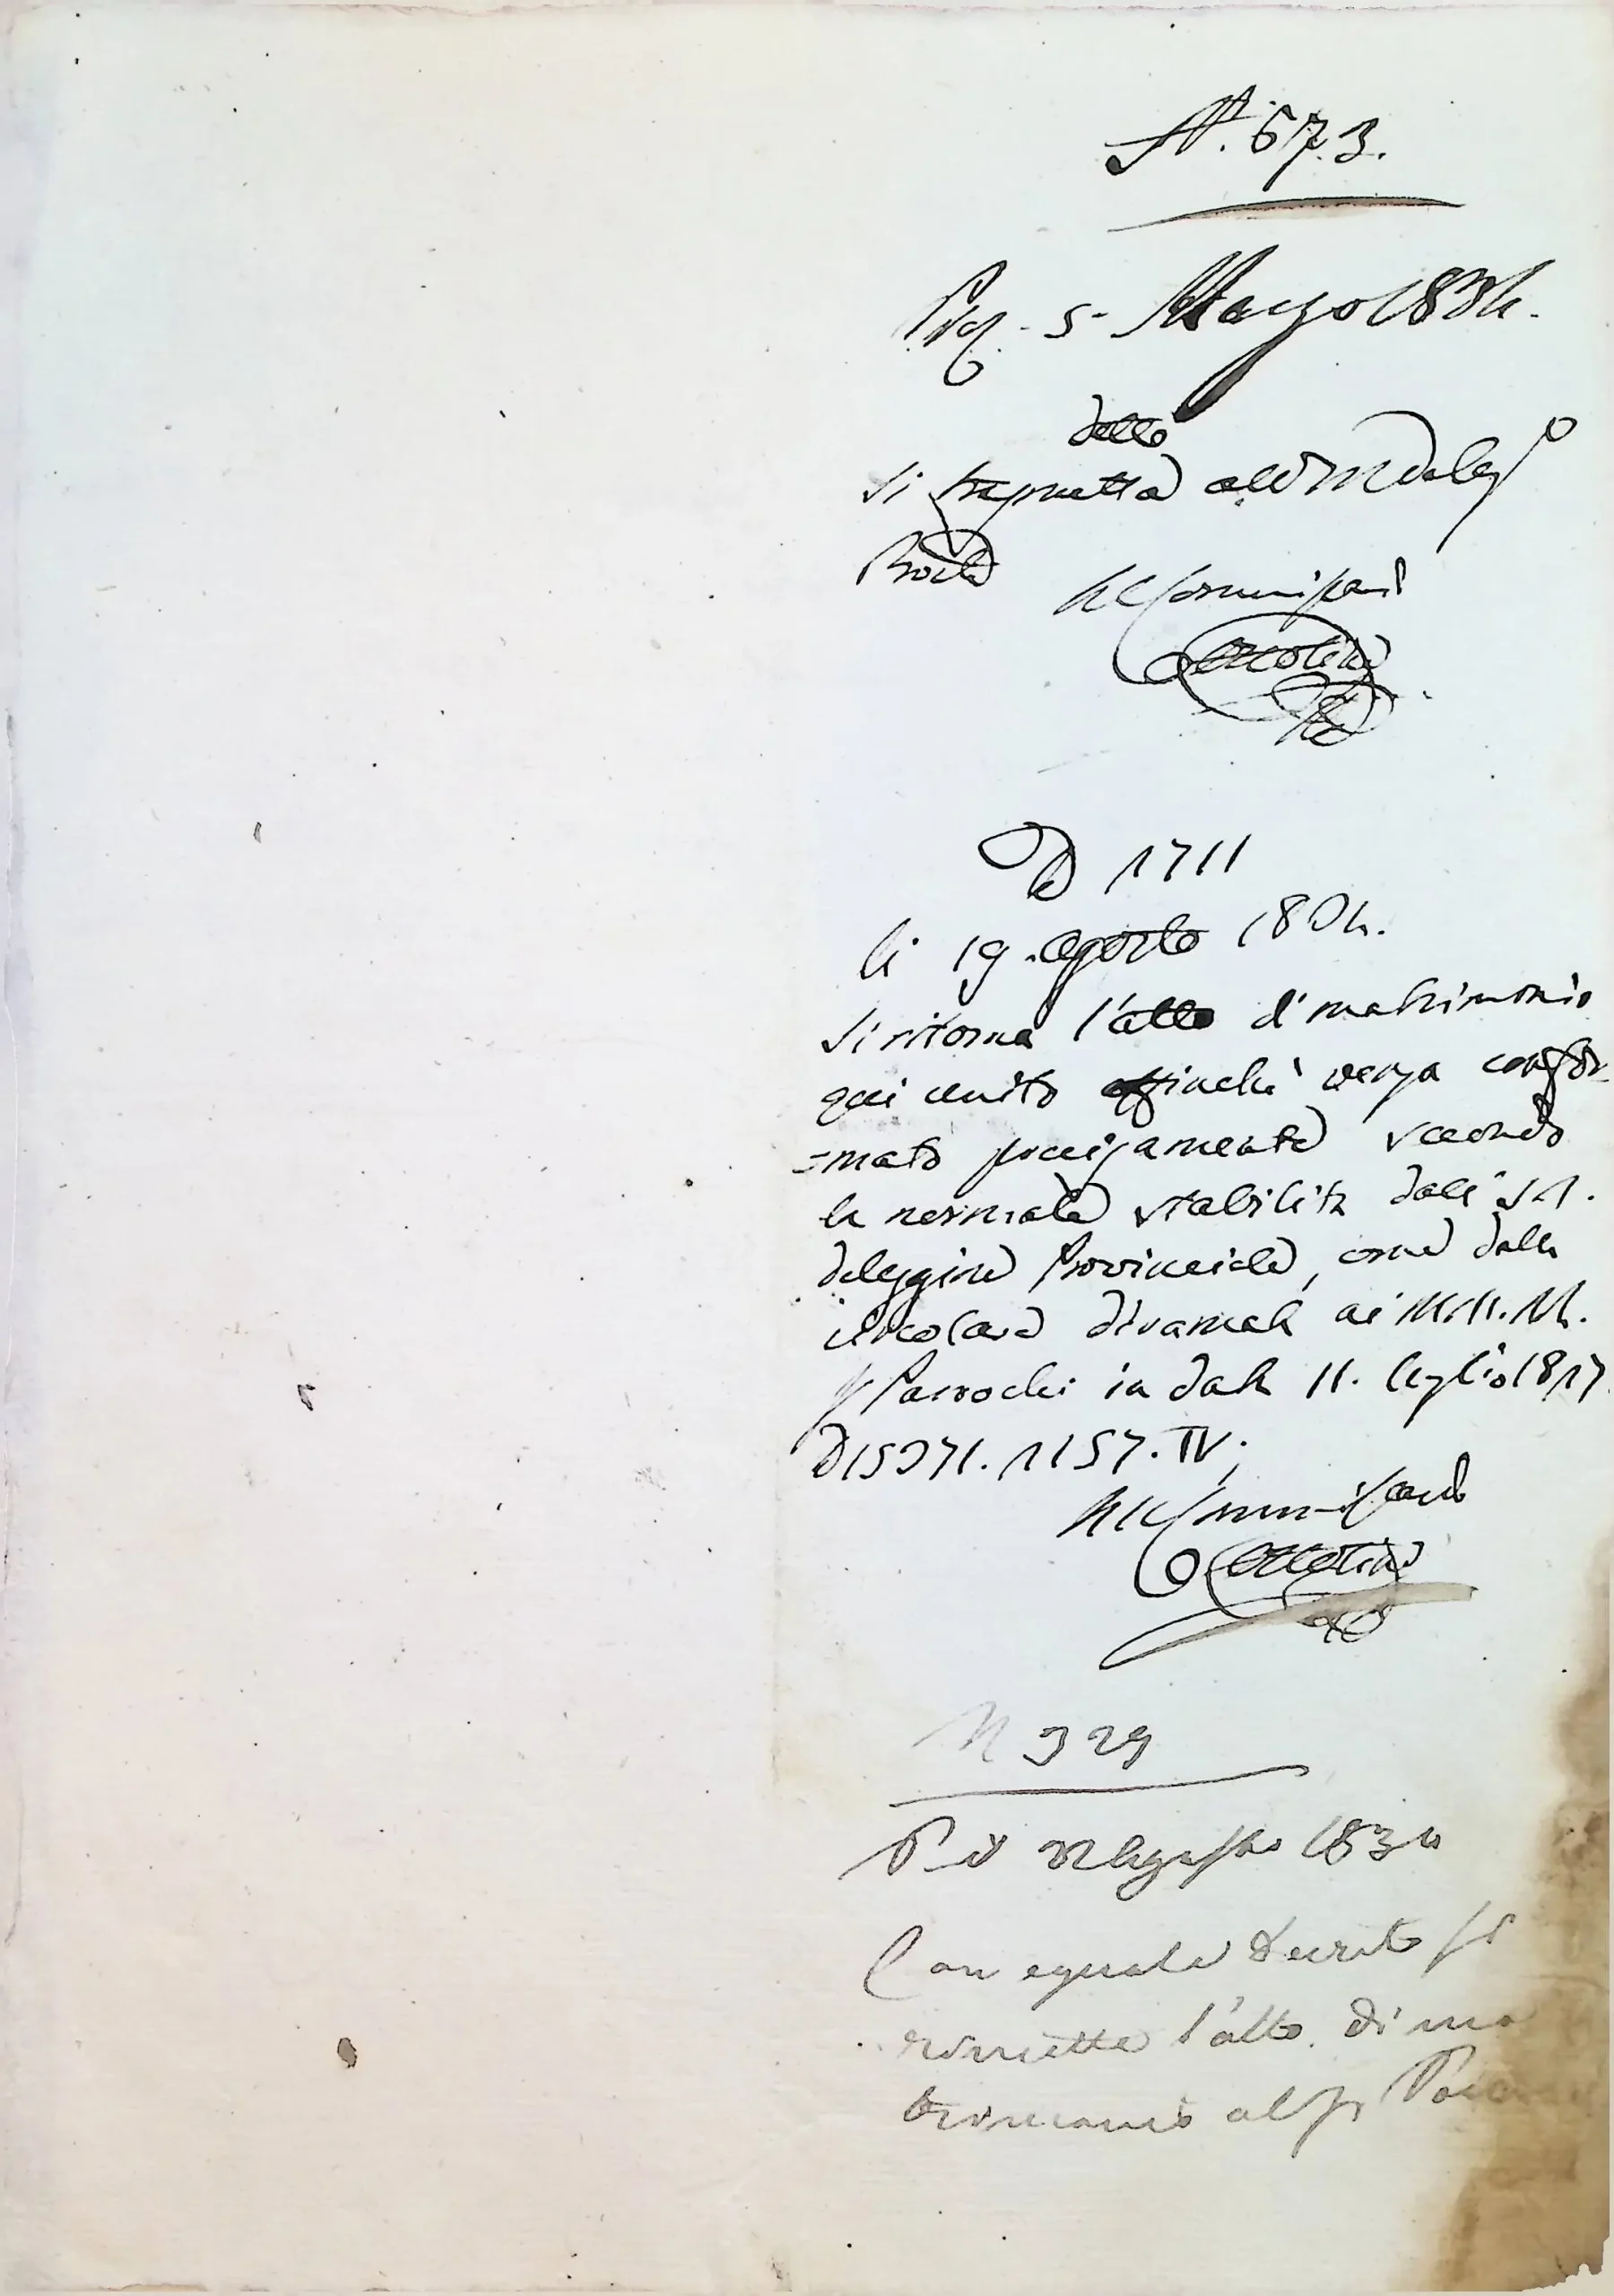 N. 673.
Pres. 5 Marzo 1834.
detto
Si trasmetta all' I. R. Deleg.
Provle
Il R Commissario
Ottolini
N 1711
li 19. agosto 1834.
Si ritorna l'atto di matrimonio
qui unito affinchè venga confor-
-mato precisamente secondo
le normale stabilita dall' I. R.
Delegazione Provinciale, come dalla
circolare diramata ai M.M. R.R.
Parrochi in data 11. luglio 1817
N 15371. 1157. IV;
Il R Commissario
Ottolini
N 329
P. il Agosto 1834
Con eguale Decreto si
rimette l'atto di ma
trimonio al Sr